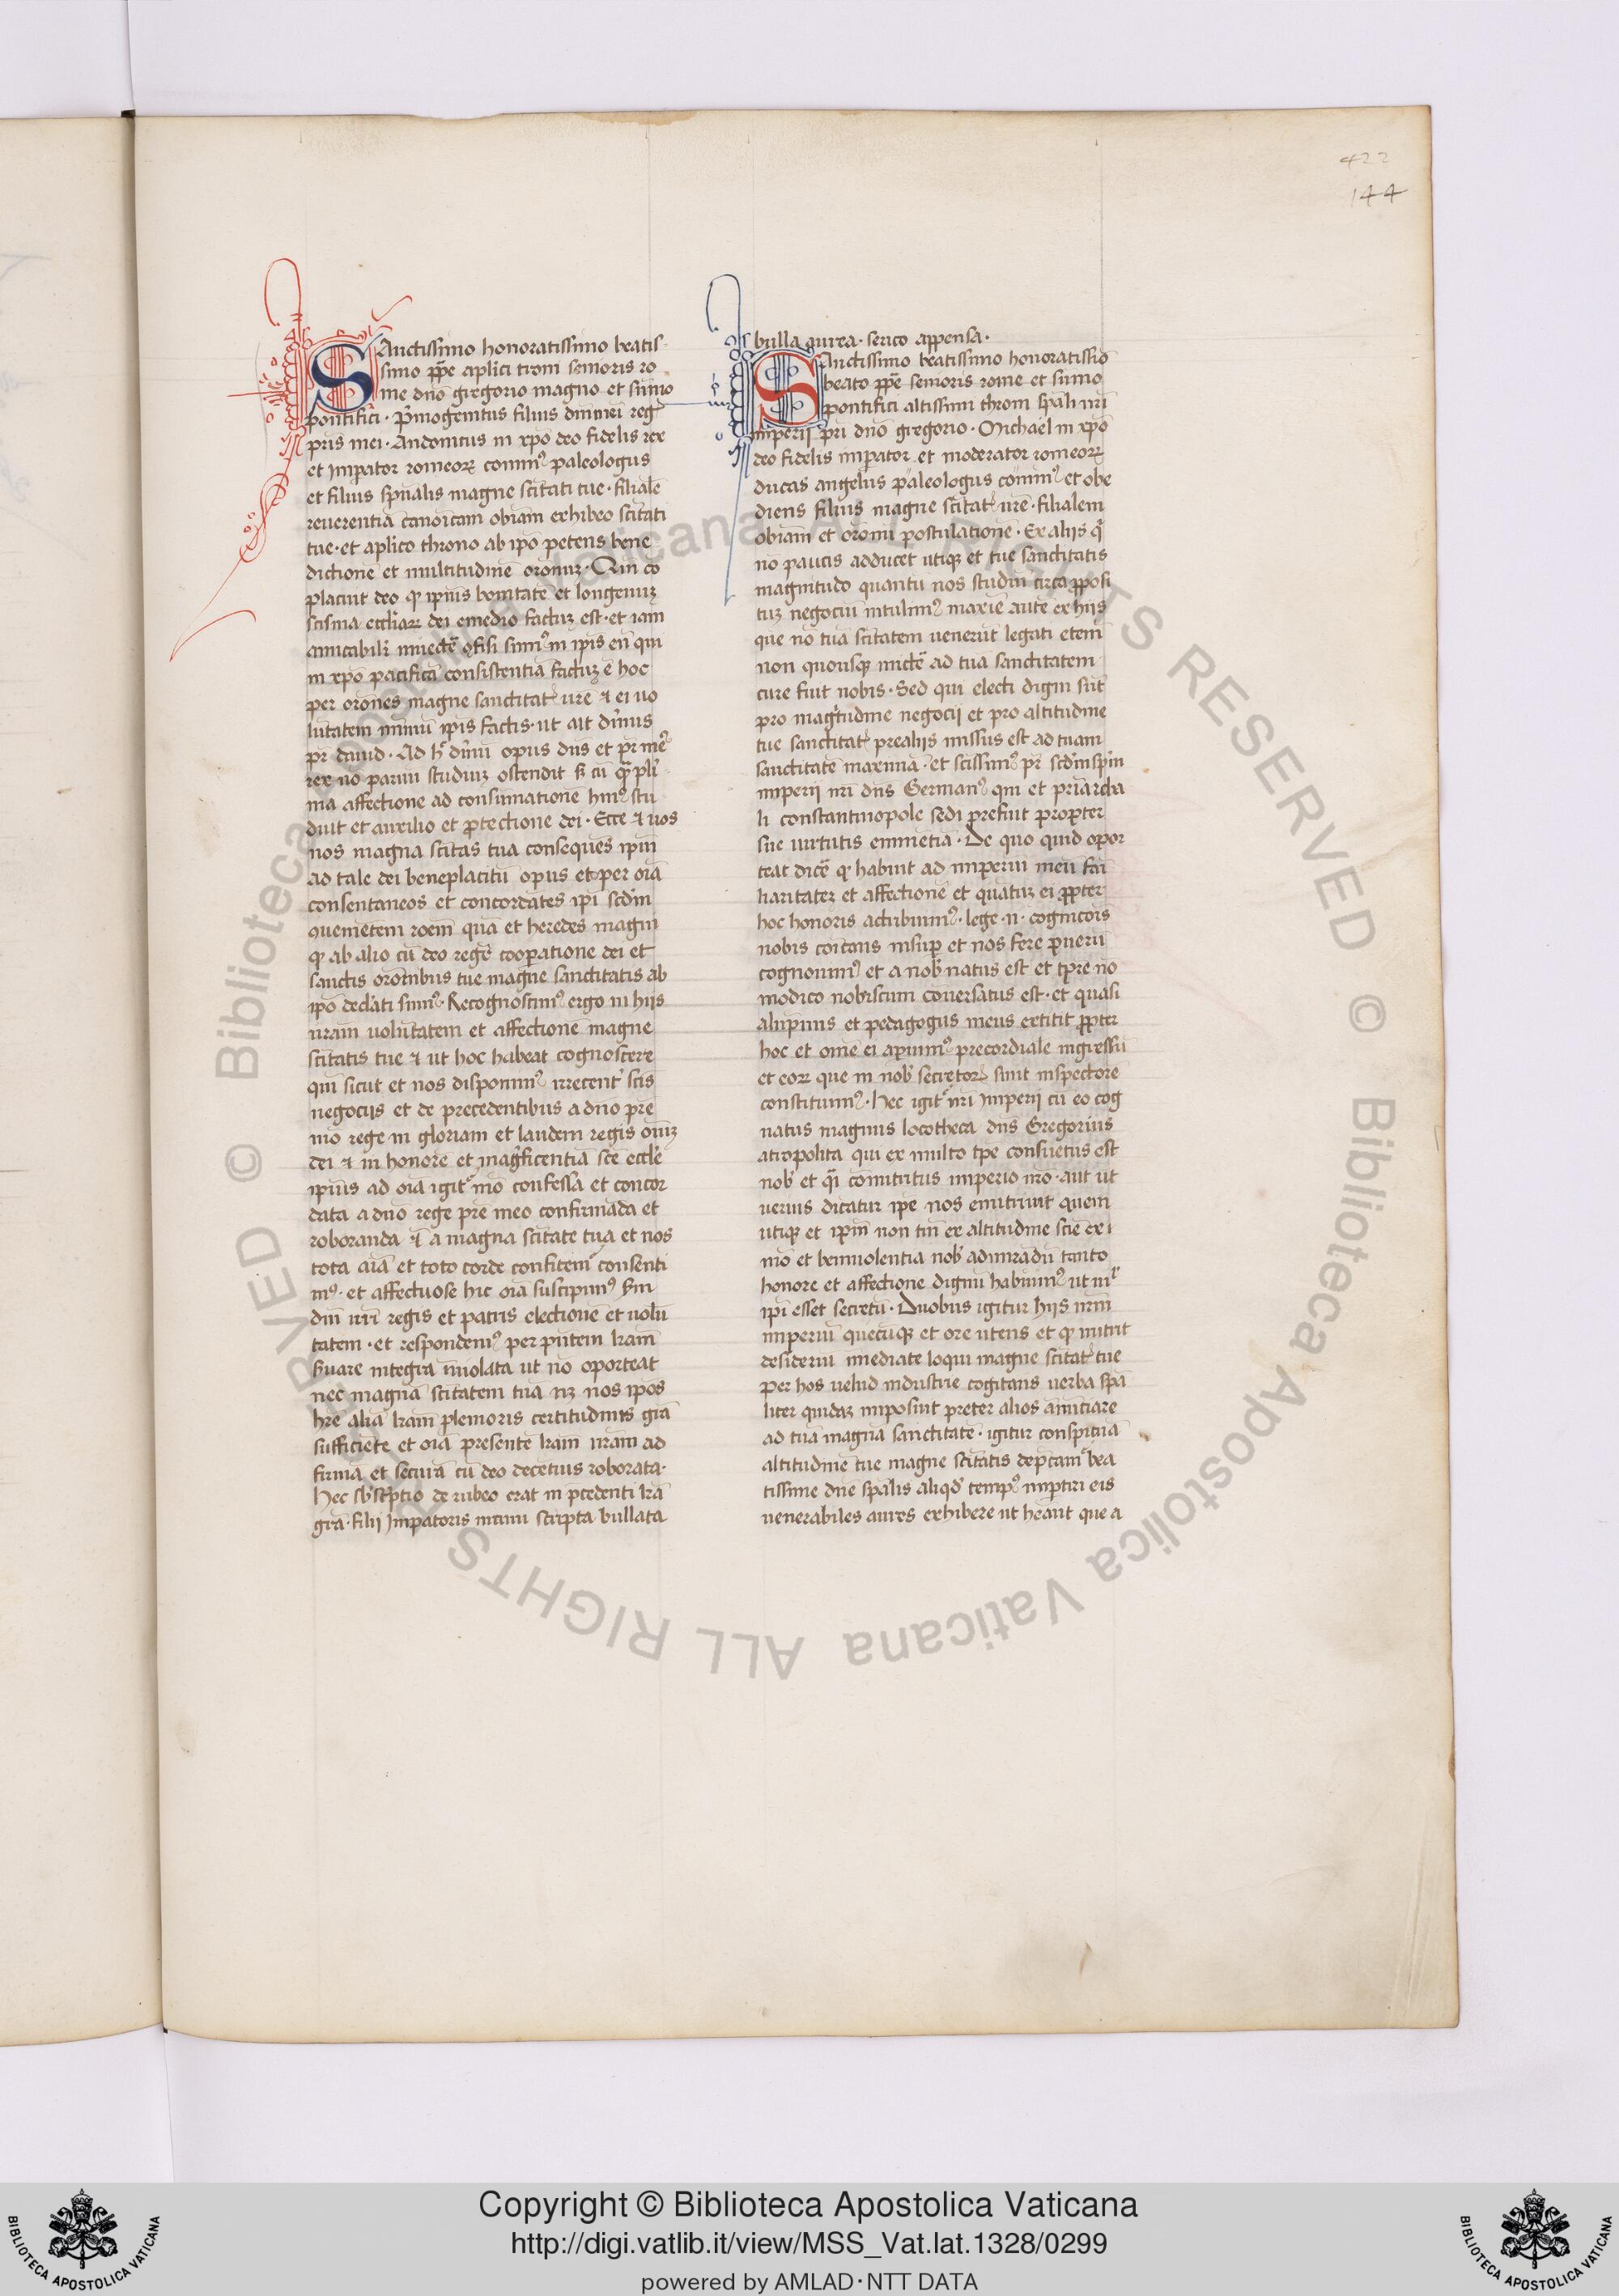 422
144
SAnctissimo honoratissimo beatis
simo ppe aplici troni senioris ro
me dno gregorio magno et sumo
pontifici · Pmogenitus filius dni mei reg
pris mei · Andonicus in xpo deo fidelis rex
et Impator romeoꝝ comn⁹ paleologus
et filius spualis magne scitati tue · filiale
reuerentia canoicam obiam exhibeo scitati
tue · et aplico throno ab ipo petens bene
dictione et multitudine oronuꝫ ·
placuit deo ipius bonitate et longeuuꝫ
scisma ecclīaꝝ dei emedio factuꝫ est · et iam
amicabilr sum⁹ in ipis qui
in xpo pacifica consistentia factuꝫ e hoc
per orones magne sanctitat ure ⁊ ei uo
lutatem ipis factis · ut ait diuus
pr dauid · Ad opus dns et pr me⁹
rex no paruu studiuꝫ ostendit cu
ma affectione ad consumatione stu
duit et auxilio et ptectione dei · Ecce ⁊ nos
nos magna scitas tua consequens ipm
ad tale dei beneplacitu opus et per oia
consentaneos et concordates ipi scdm
roem qua et heredes magni
ab alio cu deo regni coopatione dei et
sanctis oronibus tue magne sanctitatis ab
ipo declati sum⁹ · Recognoscim⁹ ergo in hiis
uram uolutatem et affectione magne
scitatis tue ⁊ ut hoc habeat cognoscere
qui sicut et nos disponim⁹ scis
negociis et de precedentibus a dno pre
mo rege in gloriam et laudem regis oiuꝫ
dei ⁊ in honore et magficentia sce eccle
ipius ad oia igit confessa et concor
data a dno rege pre meo confirmada et
roboranda ⁊ a magna scitate tua et nos
tota aia et toto corde confitem consenti
m⁹ · et affectuose hic oia suscipim⁹
dni nri regis et patris electione et uolu
tatem · et respondem⁹ per pntem lram
suare integra inuiolata ut no oporteat
nec magna scitatem tua nꝫ nos ipos
hre alia lram plenioris certitudinis gra
sufficiete et oia presente lram nram ad
firma et secura cu deo decetius roborata ·
Hec sbscptio de rubeo erat in pcedenti lra
gra · filii Impatoris manu scripta bullata
bulla aurea · serico appensa ·
SAnctissimo beatissimo honoratissio
beato ppe senioris rome et sumo
pontifici altissimi throni spali nri
imperij pri dno gregorio · Michael in xpo
deo fidelis impator et moderator romeoꝝ
ducas angelus paleologus comn⁹ et obe
diens filius magne scitat ure · filialem
obiam et oronu postulatione · Ex aliis
no paucis adducet utiqꝫ et tue sanctitatis
magnitudo quantu nos studiu circa pposi
tuꝫ negociu intulim⁹ maxie aute ex hiis
que no tua scitatem uenerut legati etem
non quousqꝫ ad tua sanctitatem
cure fuit nobis · Sed qui electi digni sut
pro magtudine negocij et pro altitudine
tue sanctitat prealiis missus est ad tuam
sanctitate maxima · et scissim⁹ pr scdm spm
imperii nri dns German⁹ qui et priarcha
li constantinopole sedi prefuit propter
sue uirtutis eminetia · De quo quid opor
teat dice habuit ad imperiu meu fami
liaritateꝫ et affectione et quatuꝫ ei ppter
hoc honoris actribuim⁹ · lege · n · cognicois
nobis coitans insup et nos fere pueru
cognouim⁹ et a nob natus est et tpre no
modico nobiscum conuersatus est · et quasi
alupnus et pedagogus meus extitit ppter
hoc et ome ei apuim⁹ precordiale ingressu
et eoꝝ que in nob secretoꝝ sunt inspectore
constituim⁹ · Hec igit nri Imperij cu eo cog
natus magnus locotheca dns Gregorius
atropolita qui ex multo tpe consuetus est
nob et qi comitritus imperio nro · aut ut
uerius dicatur ipe nos enutriuit quem
utiqꝫ et ipm non tm ex altitudine scie ex i
mo et beniuolentia nob admiradu tanto
honore et affectione dignu habuim⁹ ut
ipi esset secretu · Duobus igitur hiis nrm
imperiu quecuqꝫ et ore utens et mittit
desideriu imediate loqui magne scitat tue
per hos uelud industrie cogitans uerba spa
liter quidaꝫ imposuit preter alios annuciare
ad tua magna sanctitate · igitur conspicua
altitudine tue magne scitatis depcam bea
tissime dne spalis aliqd temp⁹ imptiri eis
uenerabiles aures exhibere ut heant que a
Copyright © Biblioteca Apostolica Vaticana
http://digi.vatlib.it/view/MSS_Vat.lat.1328/0299
powered by AMLAD·NTT DATA
BIBLIOTECA APOSTOLICA VATICANA
BIBLIOTECA APOSTOLICA VATICANA
© Biblioteca Apostolica Vaticana ALL RIGHTS RESERVED © Biblioteca Apostolica Vaticana ALL RIGHTS RESERVED